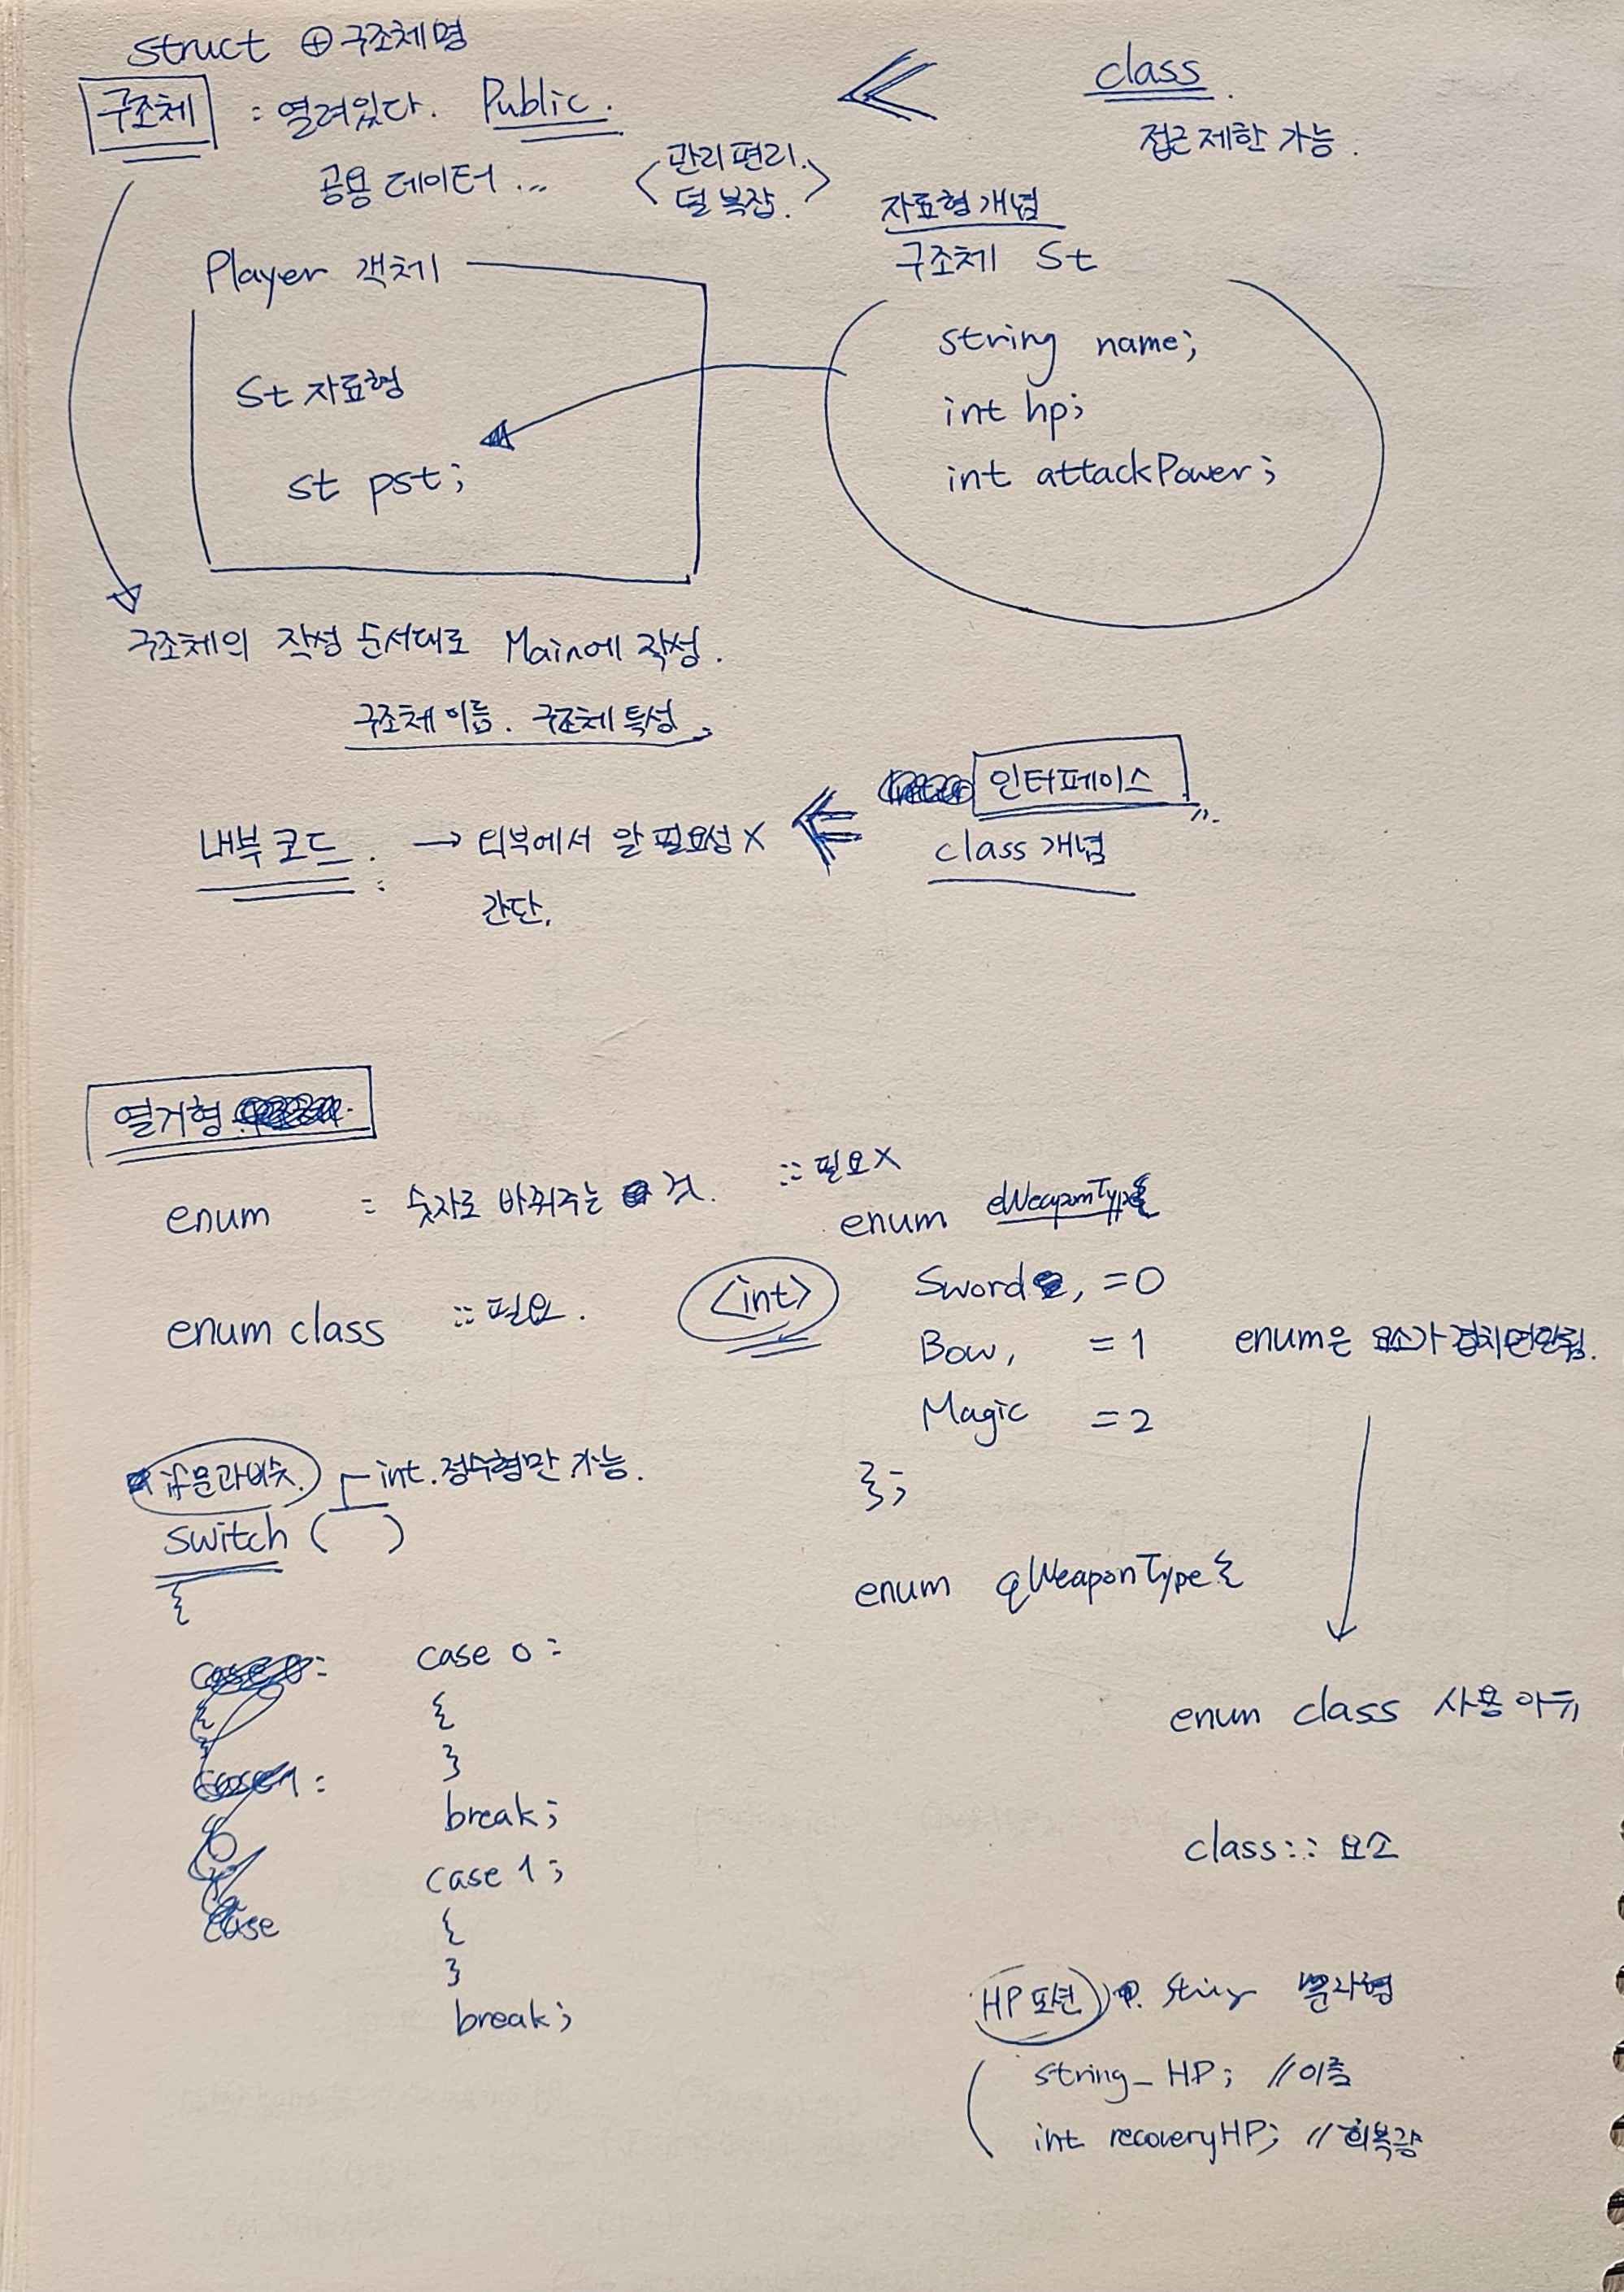 struct ⊕ 구조체명
구조체 : 열려있다. Public.
class.
접근 제한 가능.
공용 데이터...
<관리 편리.
덜 복잡.>
자료형 개념
구조체 St
Player 객체
St 자료형
st pst;
string name;
int hp;
int attackPower;
구조체의 작성 순서대로 Main에 작성.
구조체 이름. 구조체 특성;
인터페이스
class 개념
내부 코드. → 외부에서 알 필요성 X
간단.
열거형
enum : 숫자로 바꿔주는 것.
enum class :: 필요.
<int>
:: 필요X
enum eWeaponType{
Sword, =0
Bow, =1
Magic =2
};
enum은 요소가 겹치면안됨.
enum qWeaponType{
enum class 사용
class:: 요소
if문과비슷.
int. 정수형만 가능.
switch ( )
{
case 0:
{
}
break;
case 1;
{
}
break;
case
HP포션
문자형
string_ HP; //이름
int recoveryHP; //회복량